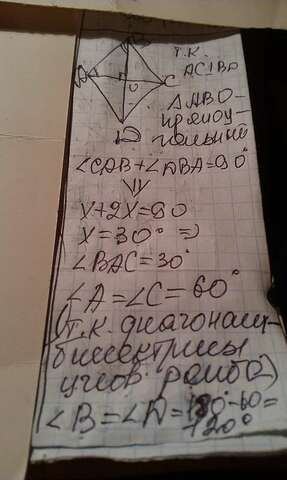 B
A
C
O
D
Т.К.
AC⊥BD
△ABO-
прямоу-
гольный
∠CAB+∠ABA=90°
X+2X=90
X=30° =>
∠BAC=30°
∠A=∠C=60°
(Т.К. диагонали-
биссектрисы
углов ромба)
∠B=∠D=180°-60=
120°